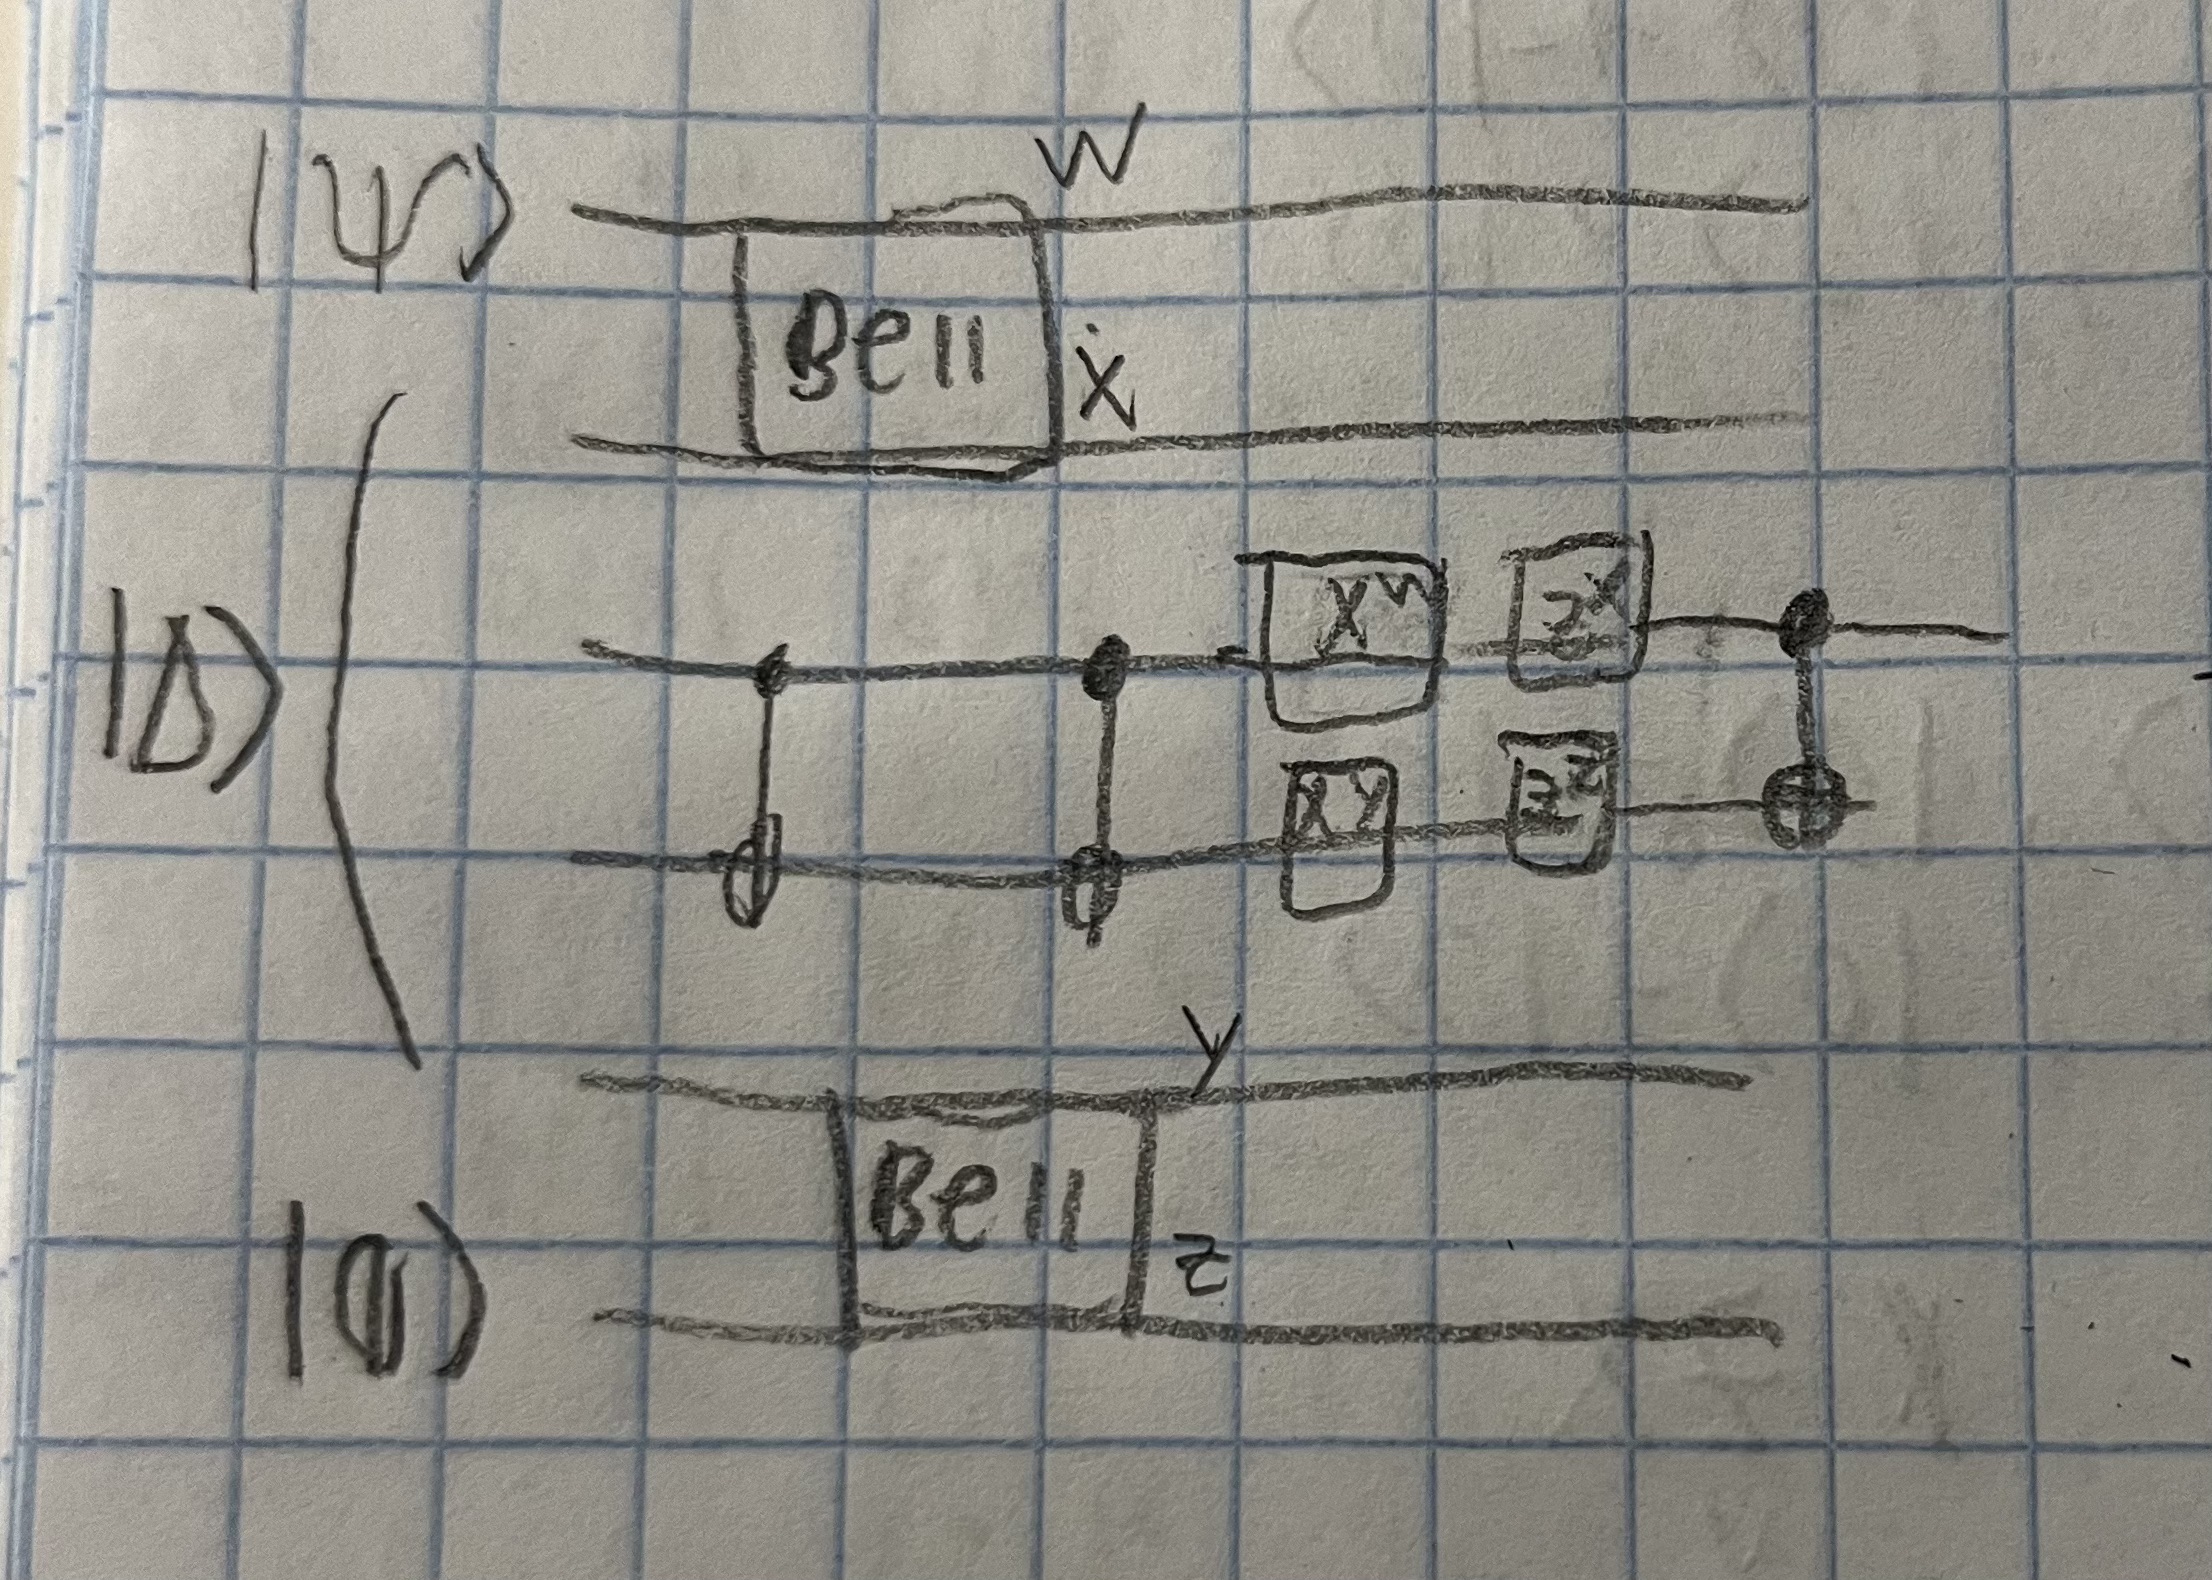 |ψ⟩
W
Bell
X
X^W Z^X
|Δ⟩
X^Y Z^Z
Y
Bell
|φ⟩
Z